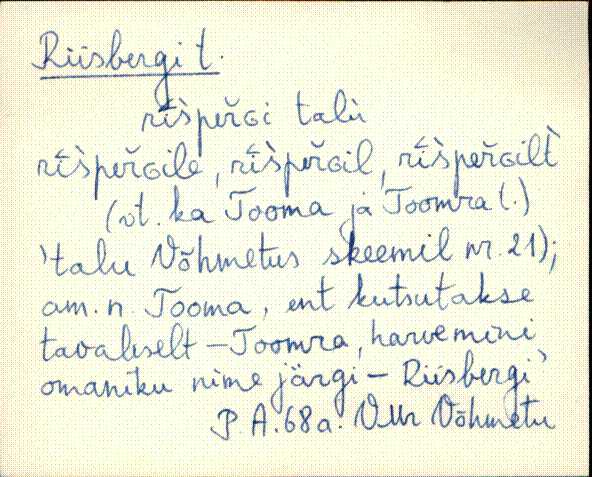 Riisbergi t.
rīśpeřGi talù
rīśpeřGile, rīśpeřGil, rīśpeřGilt̀
(vt. ka Tooma ja Toomra t.)
'talu Võhmetus skeemil nr. 21);
am. n. Tooma, ent kutsutakse
tavaliselt – Toomra, harvemini
omaniku nime järgi – Riisbergi'
P. A. 68a. VMr Võhmetu